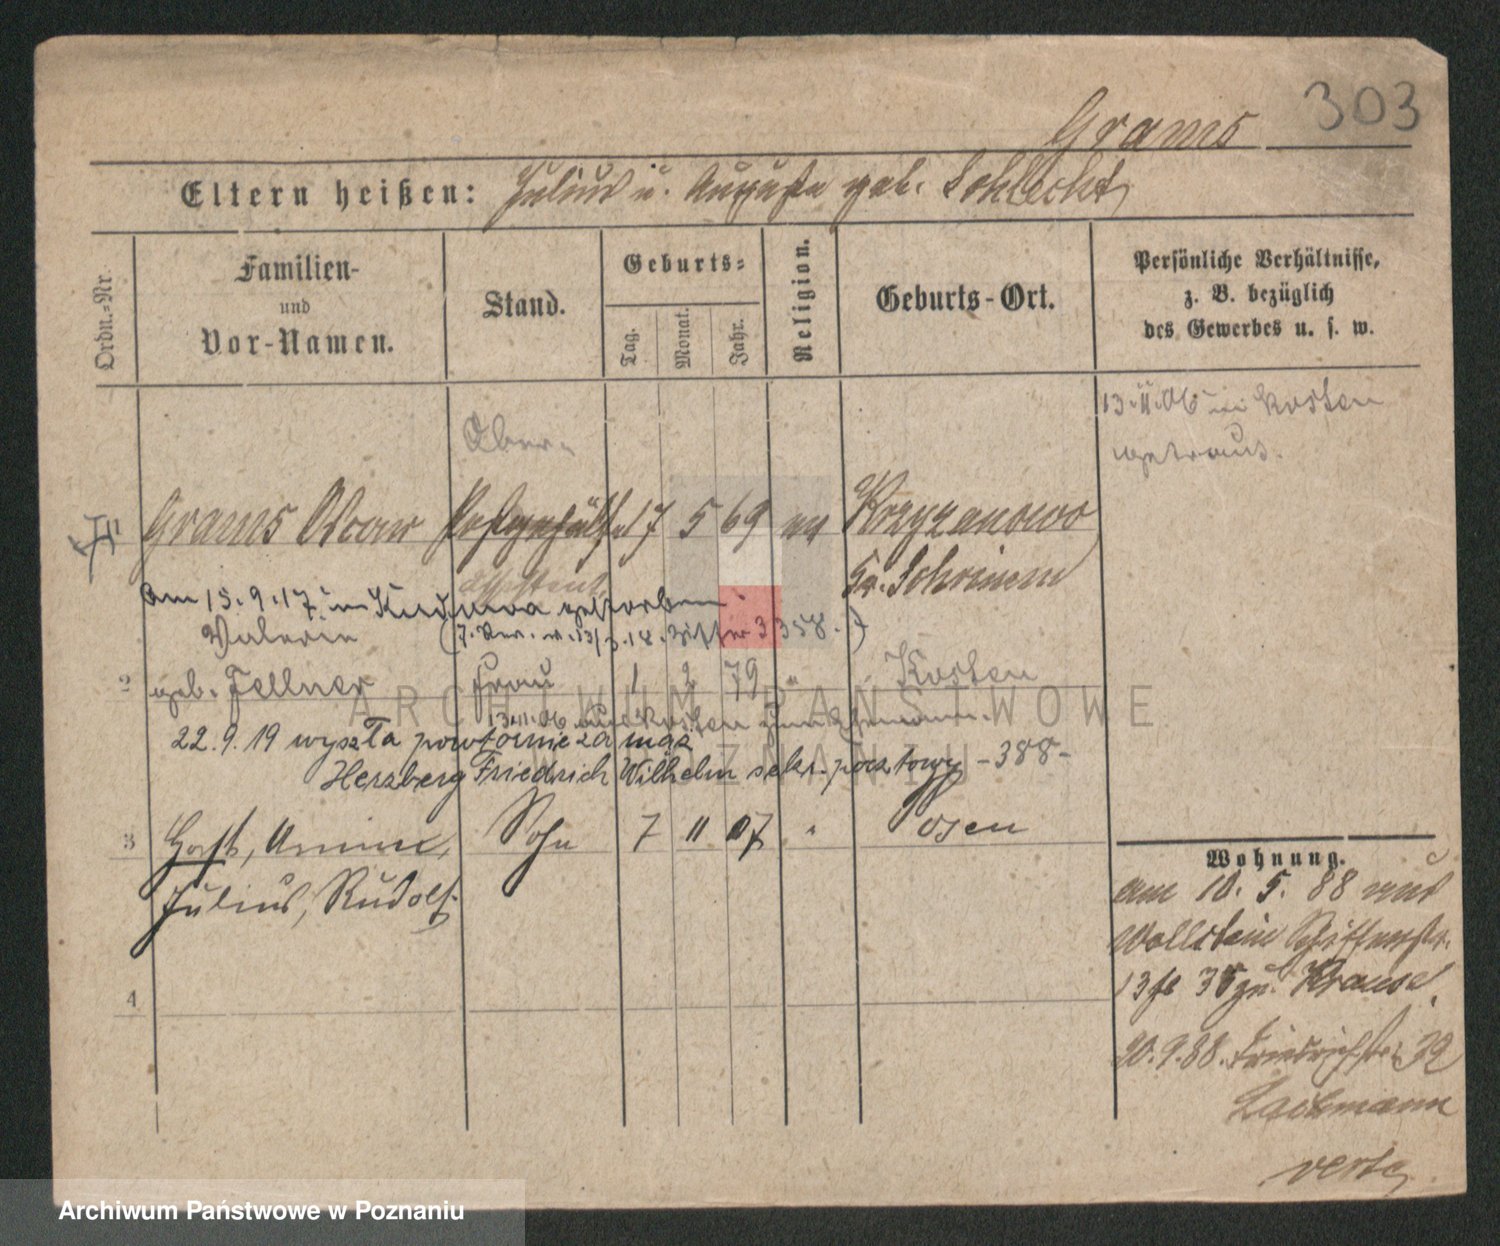 303
Grams
Eltern heißen: Julius u. Auguste geb. Schlecht
Ordn.-Nr.
Familien-
und
Vor-Namen.
Stand.
Geburts-
Tag.
Monat.
Jahr.
Religion.
Geburts-Ort.
Persönliche Verhältnisse,
z. B. bezüglich
des Gewerbes u. s. w.
13.11.06 in Kosten
getraut.
Ober-
1 Grams Oscar Postgehülfe 17 5 69 ev Krzyzanowo
Kr. Schrimm
assistent
Am 13.9.17 in Kudowa gestorben
Valerie
2 geb. Fellner Frau 1 2 79 " Kosten
13.11.06 aus Kosten zum Ehemann.
22.9.19 wyszła powtórnie za mąż
Herzberg Friedrich Wilhelm sekr. pocztowy - 388 -
3 Horst, Armin, Sohn 7 11 07 " Posen
Julius, Rudolf
4
Wohnung.
am 10. 5. 88 aus
Wollstein
13 zu Krause
20.9.88. Friedrichstr. 32
verte
ARCHIWUM PAŃSTWOWE
W POZNANIU
Archiwum Państwowe w Poznaniu